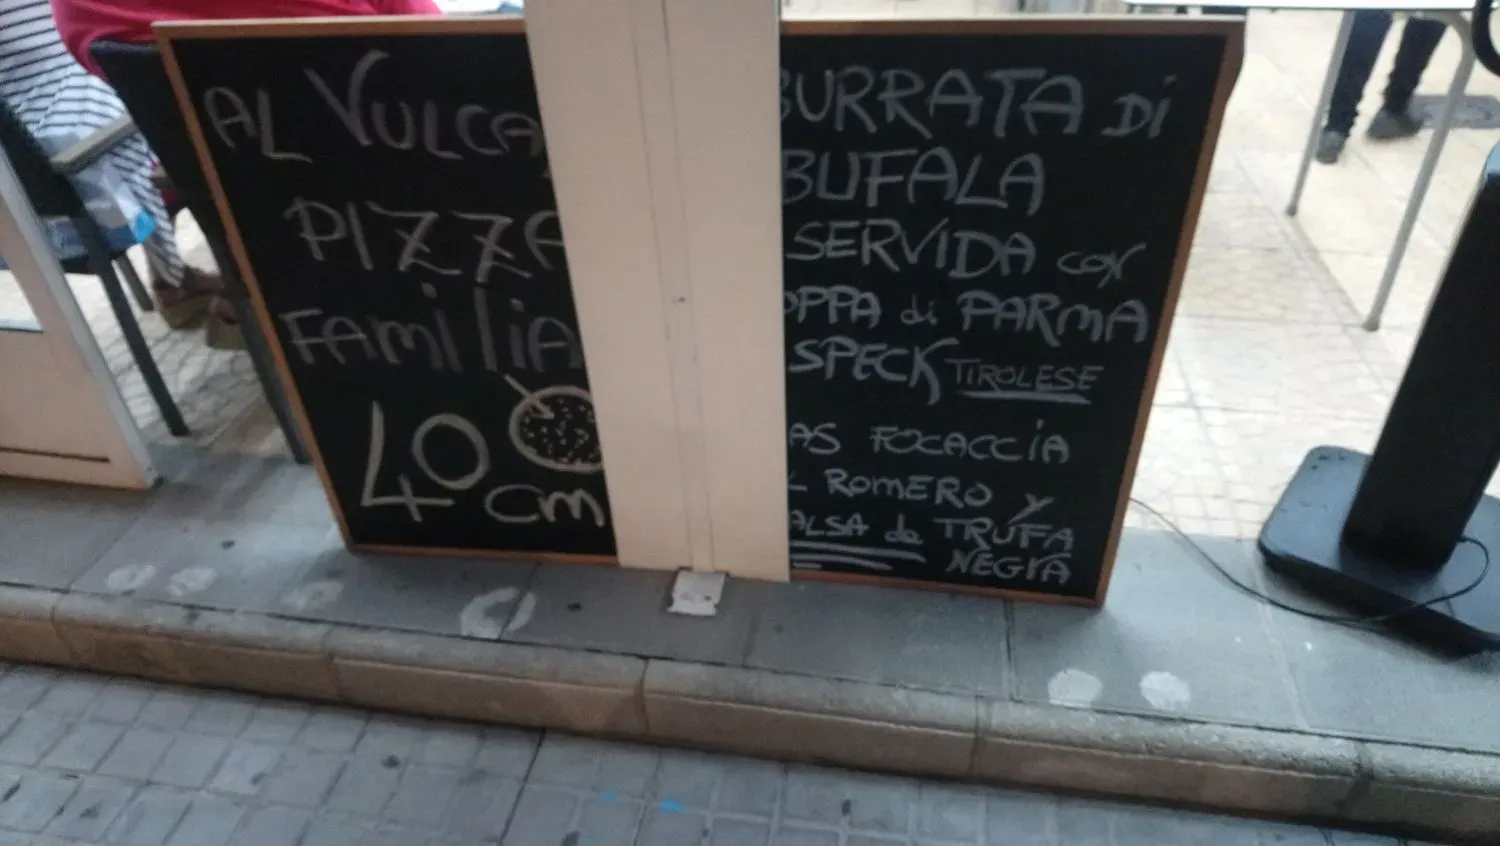 AL VULCA
PIZZA
FAMILIA
40
cm
BURRATA Di
BUFALA
SERVIDA CON
OPPA di PARMA
SPECK TIROLESE
AS FOCACCIA
L ROMERO Y
ALSA de TRUFA
NEGRA